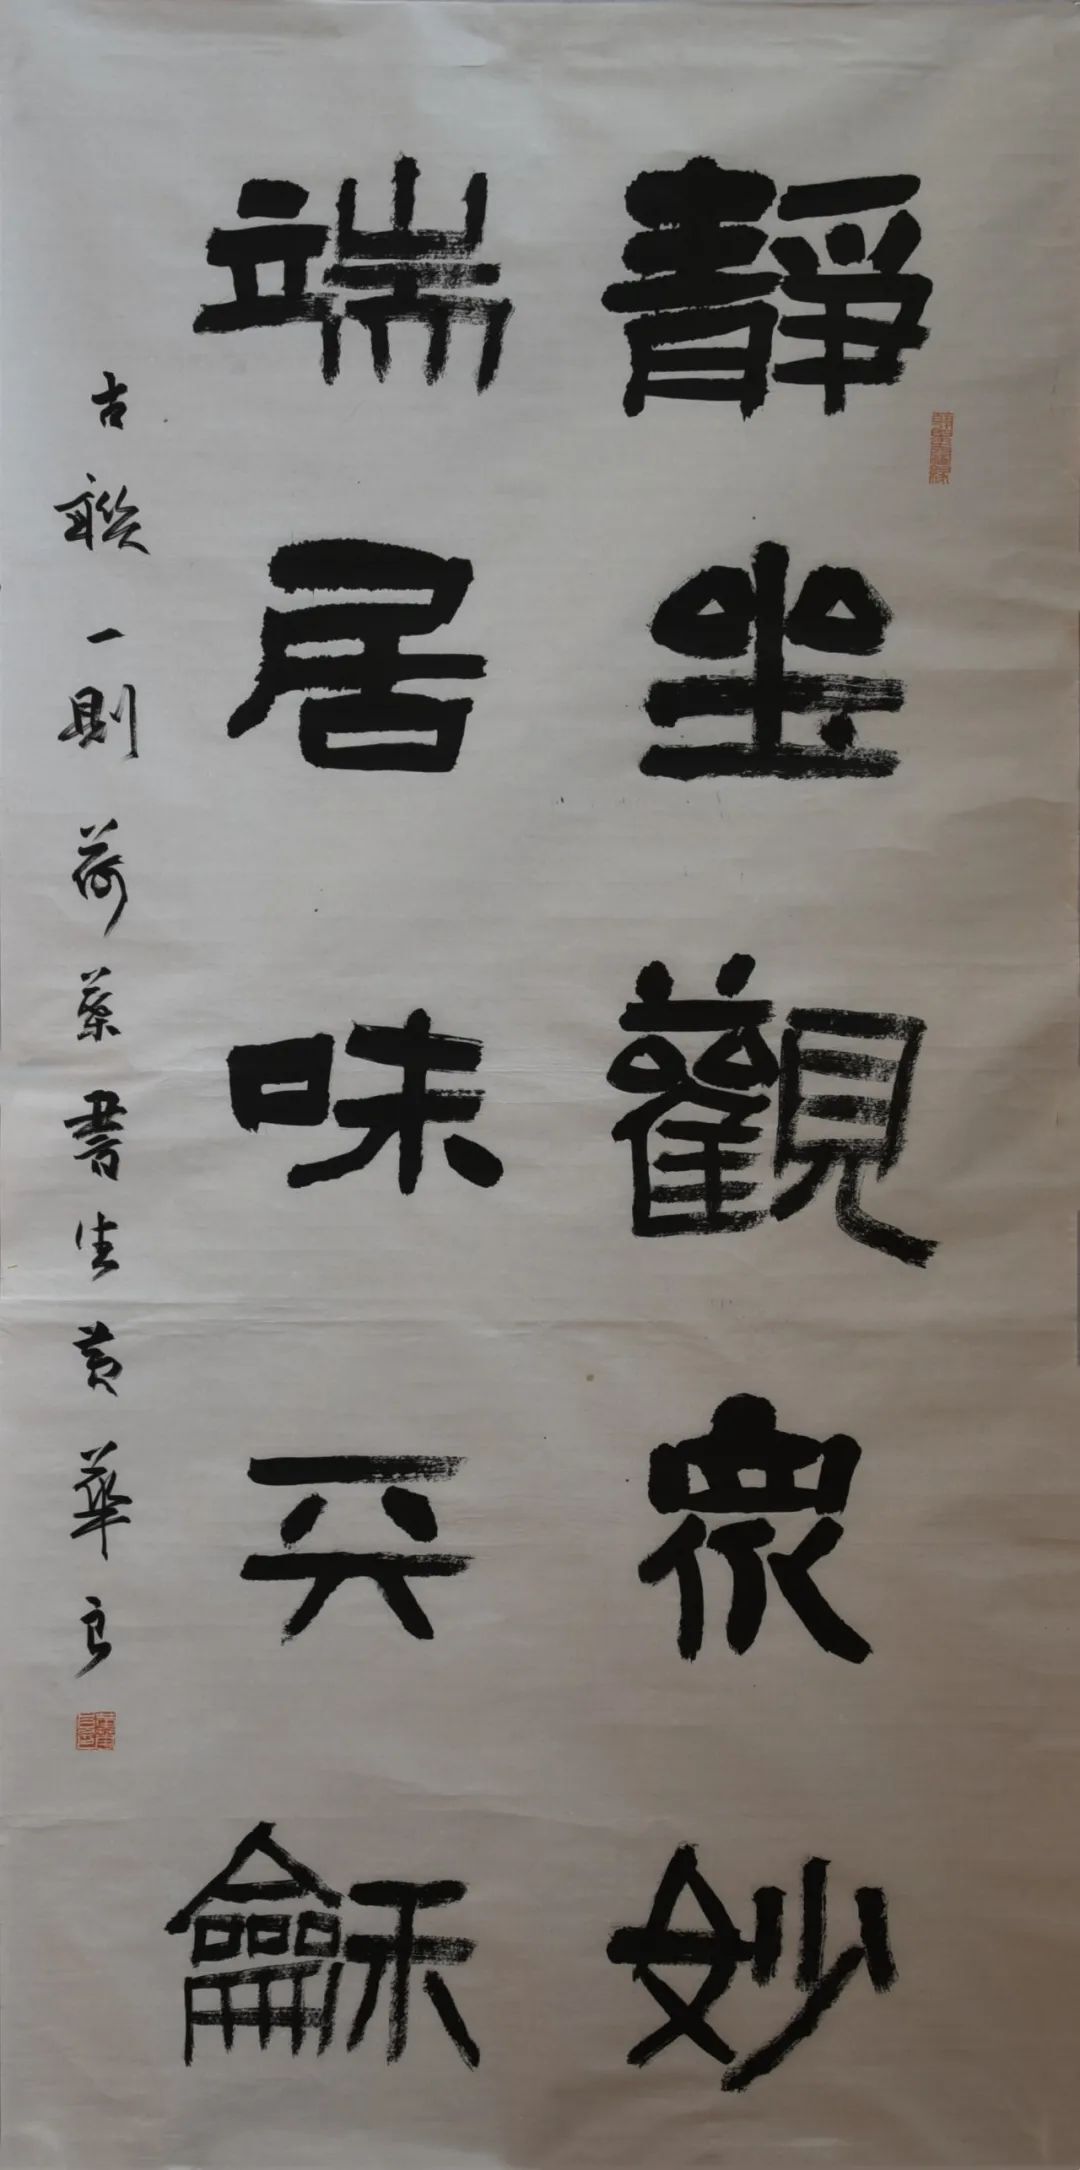 靜坐觀衆妙
端居味天龢
古聯一則荷葉書生黃華良